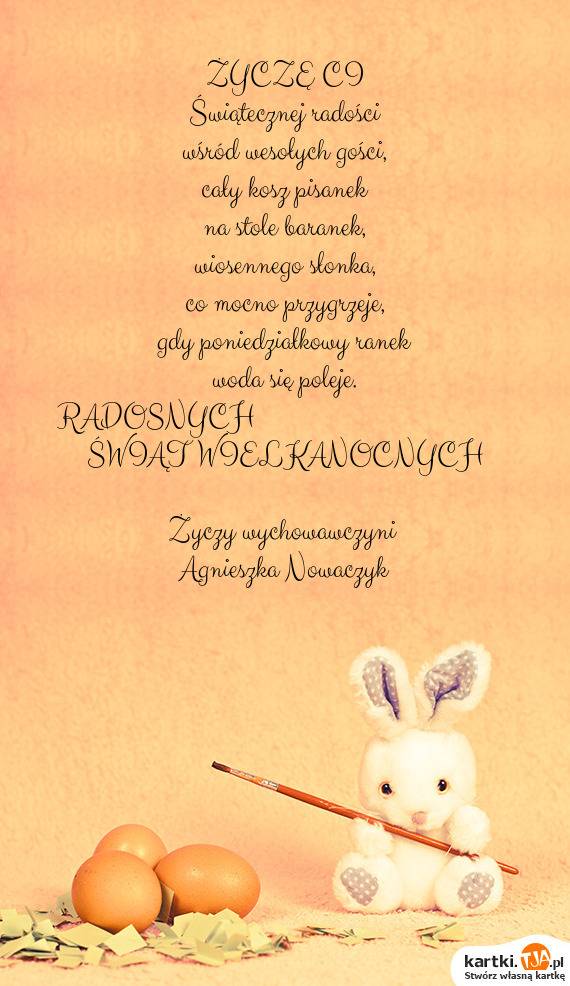 ŻYCZĘ CI
Świątecznej radości
wśród wesołych gości,
cały kosz pisanek
na stole baranek,
wiosennego słonka,
co mocno przygrzeje,
gdy poniedziałkowy ranek
woda się poleje.
RADOSNYCH
ŚWIĄT WIELKANOCNYCH
Życzy wychowawczyni
Agnieszka Nowaczyk
kartki.TJA.pl
Stwórz własną kartkę